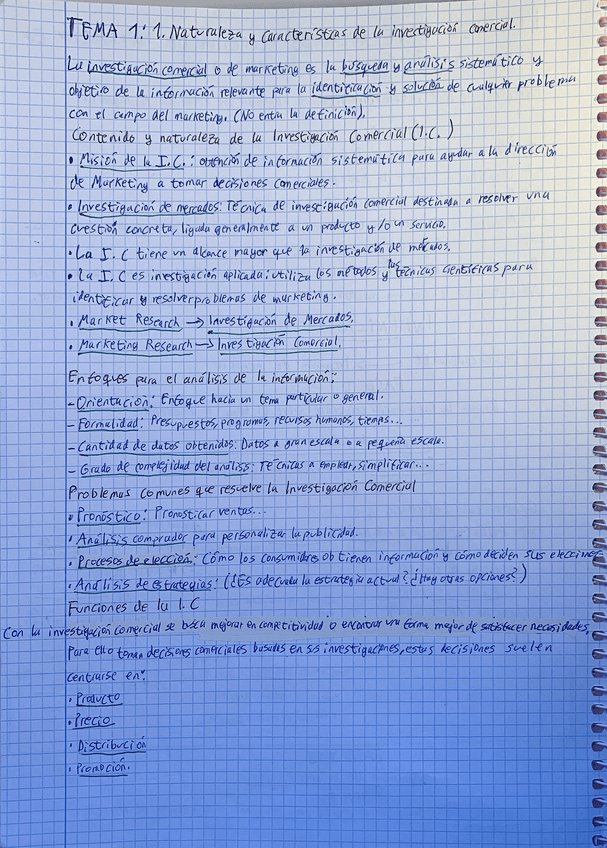 TEMA 1: 1. Naturaleza y Características de la investigación comercial.
La investigación comercial o de marketing es la búsqueda y análisis sistemático y
objetivo de la información relevante para la identificación y solución de cualquier problema
con el campo del marketing. (No entra la definición).
Contenido y naturaleza de la Investigación Comercial (I.C.)
• Misión de la I.C.: obtención de información sistemática para ayudar a la dirección
de Marketing a tomar decisiones comerciales.
• Investigación de mercados: Técnica de investigación comercial destinada a resolver una
cuestión concreta, ligada generalmente a un producto y/o un servicio.
• La I.C tiene un alcance mayor que la investigación de mercados.
• La I.C es investigación aplicada: utiliza los métodos y las técnicas científicas para
identificar y resolver problemas de marketing.
• Market Research → Investigación de Mercados.
• Marketing Research → Investigación Comercial.
Enfoques para el análisis de la información:
- Orientación: Enfoque hacia un tema particular o general.
- Formalidad: Presupuestos, programas, recursos humanos, tiempo...
- Cantidad de datos obtenidos: Datos a gran escala o a pequeña escala.
- Grado de complejidad del análisis: Técnicas a emplear, simplificar...
Problemas comunes que resuelve la Investigación Comercial
• Pronóstico: Pronosticar ventas...
• Análisis comprador para personalizar la publicidad.
• Procesos de elección: Cómo los consumidores obtienen información y cómo deciden sus elecciones
• Análisis de estrategias: (¿Es adecuada la estrategia actual? ¿Hay otras opciones?)
Funciones de la I.C
Con la investigación comercial se busca mejorar en competitividad o encontrar una forma mejor de satisfacer necesidades,
Para ello toman decisiones comerciales basadas en sus investigaciones, estas decisiones suelen
centrarse en:
• Producto
• Precio
• Distribución
• Promoción.